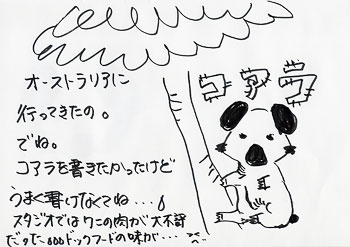 コアラ
オーストラリアに
行ってきたの。
でね。
コアラを書きたかったけど
うまく書けなくてね…。
スタジオではワニの肉が大不評
だった…。。。ドックフードの味が…